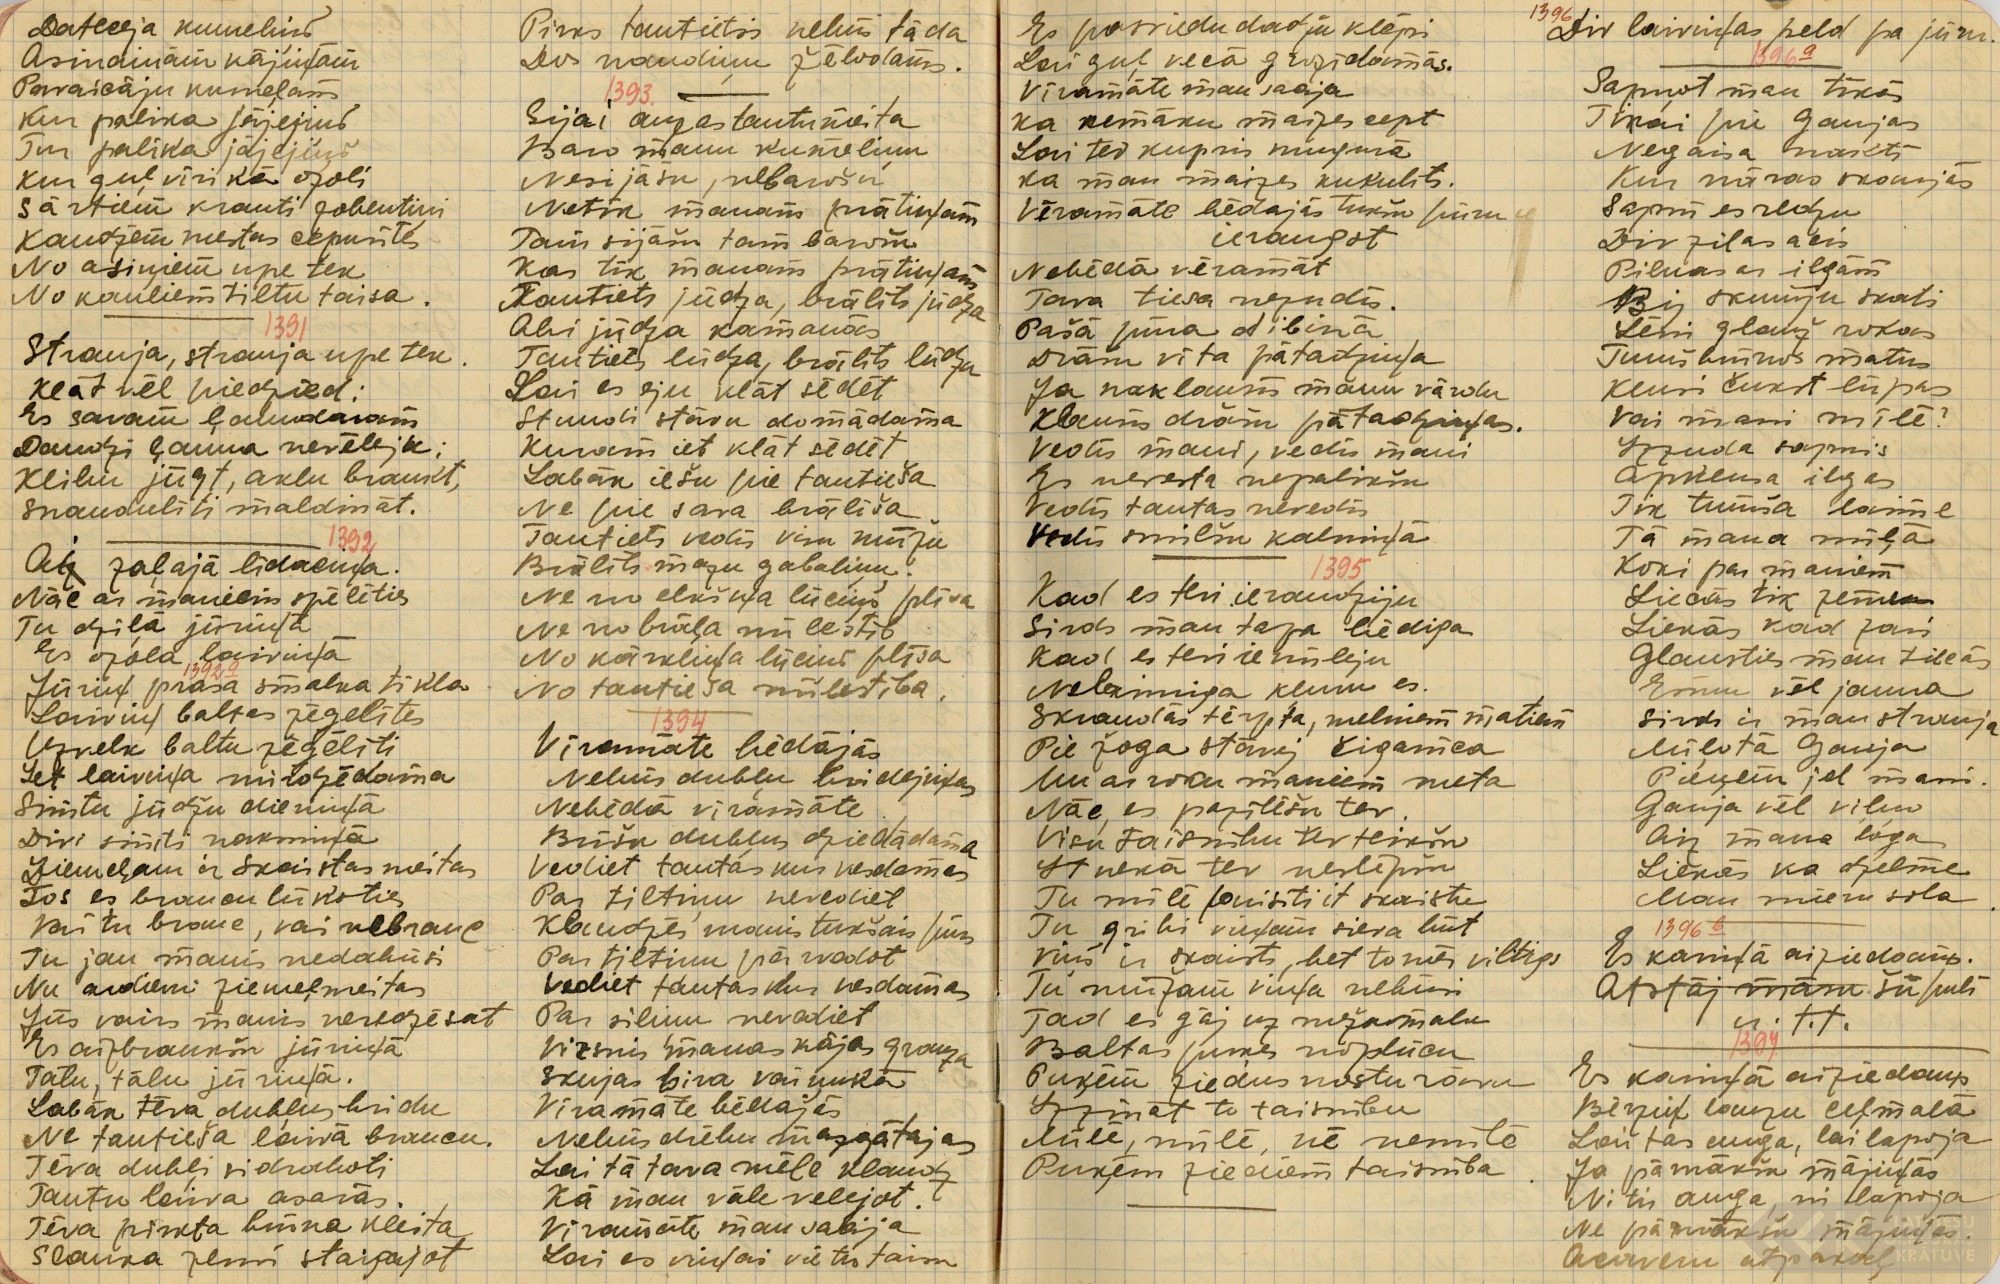 Dateceja kumeliņš
Asinainām kājiņām
Pavaicāju kumeļam
Kur palika jājejiņš
Tur palika jājejiņš
Kur guļ vīri kā ozoli
Sārtiem krauti zobentiņi
Kaudzēm mestas cepurītes
No asiņiem upe tek
No kauliem tiltu taisa.
1391
Strauja, strauja upe tek.
Klāt vēl piedzied:
Es savam ļaundaram
Daudzi ļauna nevēlēju;
Klibu jūgt, aklu braukt,
Snauduliti maldināt.
1392
Aiz zaļajā līdaciņa.
Nāc ar maniem spēlēties
Tu dziļā jūriņā
Es ozola laiviņā
1392a
Jūriņ prasa smalka tīkla
Laiviņ baltas zēgelītes
Uzvelk baltu zēgelīti
Let laiviņa mirdzēdama
Simtu jūdžu dieniņā
Divi simti naksniņā
Ziemeļam ir skaistas meitas
Tos es braucu lūkoties
Vai tu brauc, vai nebrauc
Tu jau manis nedabūsi
Nu ardievi ziemeļmeitas
Jūs vairs manis neredzēsat
Es aizbraukšu jūriņā
Tālu, tālu jūriņā.
Labāk tēva dubļus bridu
Ne tautieša laivā braucu.
Tēva dubļi sidraboti
Tautu laiva asarās.
Tēva pirkta brūna kleita
Slauka zemi staigājot
Pirks tautietis nebūs tāda
Dos naudiņu žēlodams.
1393.
Sijā augas tautumeita
Baro manu kumeliņu
Nesijāšu, nebarošu
Netīk manam prātiņam
Tam sijāšu tam barošu
Kas tīk manam prātiņam
Tautiets jūdza, brālīts jūdza
Abi jūdza kamanās
Tautiets lūdza, brālīts lūdza
Lai es eju klāt sēdēt
Stundi stāvu domādama
Kuram iet klāt sēdēt
Labāk iešu pie tautieša
Ne pie sava brālīša
Tautiets vedīs visu mūžu
Brālīts mazu gabaliņu.
Ne no elkšņa lūciņš plīsa
Ne no brāļa mīlestīb
No kārkliņa lūciņš plīsa
No tautieša mīlestība.
1394
Vīramāte bēdājās
Nebūs dubļu bridejiņas
Nebēdā vīramāte
Brišu dubļus dziedādama
Vediet tautas kur vesdamas
Par tiltiņu nevediet
Klaudzēs manis tukšais pūrs
Par tiltiņu pārvadot
Vediet tautas kur vesdamas
Par siliņu nevediet
Virsnis manas kājas grauza
Skujas bira vaiņukā
Vīramāte bēdājās
Nebūs drēbu mazgātajas
Lai tā tava mēle klaudz
Kā man vāle velējot.
Vīramāte man sacīja
Lai es viņai vietu taisu
Es pasviedu dadžu klēpi
Lai guļ vecā grozīdamās.
Vīramāte man sacīja
Ka nemāku maizes cept
Lai tev kupris mugurā
Ka man maizes kukulīts.
Vīramāte bēdājās tukšu pūru
ieraugot
Nebēdā vīramāt
Tava tiesa nezudīs.
Pašā pūra dibinā
Drānu vīta pātadziņa
Ja neklausīs manu vārdu
Klausīs drānu pātadziņas.
Vedīs mani, vedīs mani
Es nevesta nepalikšu
Vedīs tautas nevedīs
Vedīs smilšu kalniņā
1395
Kad es tevi ieraudzīju
Sirds man tapa bēdīga
Kad es tevi iemīlēju
Nelaimīga kļuvu es.
Skrandās tērpta, melniem matiem
Pie žoga stāvēj čigānica
Un ar roku maniem meta
Nāc, es pazīlēšu tev.
Visu taisnību tev teikšu
It nekā tev neslēpšu
Tu mīlē puisīti it skaistu
Tu gribi viņam sieva būt
Viņš ir skaists, bet tomēr viltīgs
Tu mūžam viņa nebūsi
Tad es gāj uz mežmalu
Baltas puķes noplūcu
Puķēm ziedus nostu rāvu
Izzināt to taisnību
Mīlē, mīlē, nē nemīlē
Puķēm ziediem taisnība.
1396
Div laiviņas peld pa jūru.
1396a
Sapņot man tikās
Tikai pie Gaujas
Negaisa naktī
Kur nāras skaujās
Sapnī es redzu
Div zilas acis
Pilnas ar ilgām
Bij skumju skati
Lēni glauž rokas
Tumšbrūnos matus
Klusi čukst lūpas
Vai mani mīlē?
Izzuda sapnis
Apklusa ilgas
Tik tumša laime
Tā mana mīļā
Koki par maniem
Liecās tik zemu
Liekās kad zari
Glausties man tiecās
Esmu vēl jauna
Sirds ir man strauja
Mīļotā Gauja
Pieņem jel mani.
Gauja vēl viļņo
Aiz mana loga
Liekās ka dzelme
Man mieru sola.
1396b
Es kaņiņā aiziedams.
Atstāj mām šūpuli
u. t.t.
1397
Es kaņiņā aiziedams
Bērziņ lauzu ceļmalā
Lai tas auga, lai lapoja
Ja pārnākšu mājiņās
Ni tis auga, ni lapoja
Ne pārnākšu mājiņās.